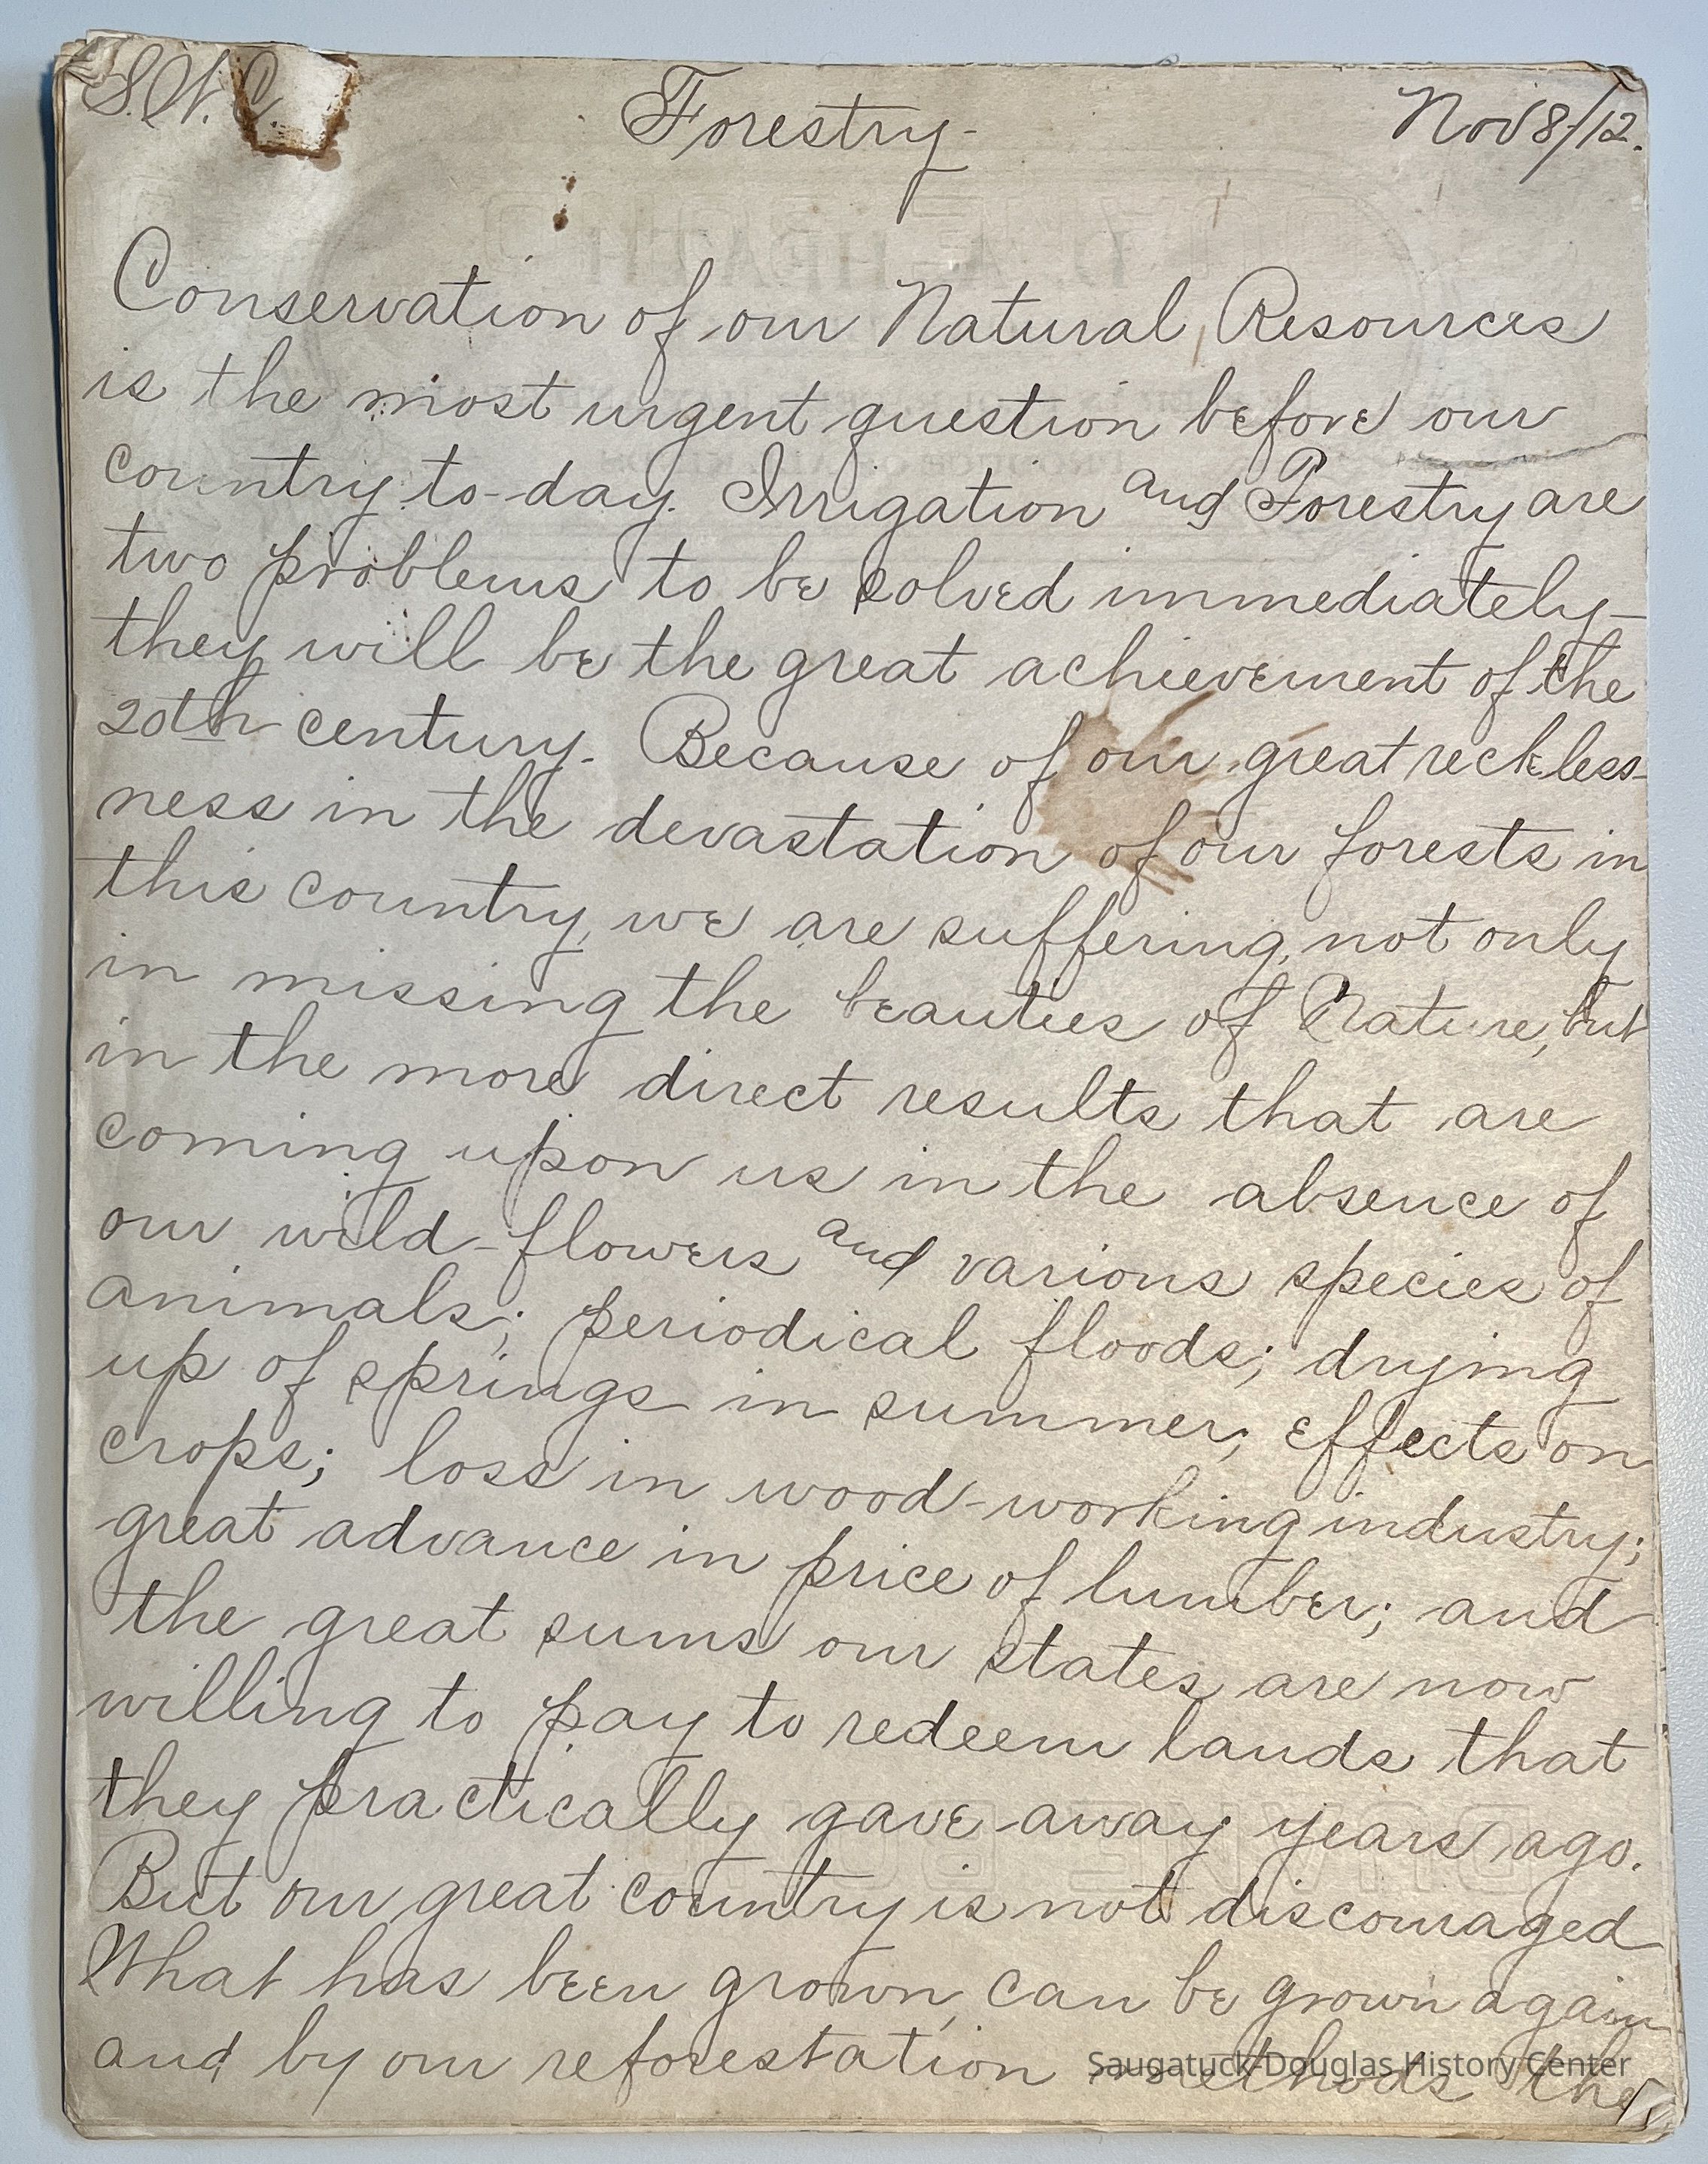 S.W.C. Forestry- Nov 8/12.
Conservation of our Natural Resources
is the most urgent question before our
country to-day. Irrigation and Forestry are
two problems to be solved immediately-
they will be the great achievement of the
20th century. Because of our great reckless-
ness in the devastation of our forests in
this country, we are suffering, not only
in missing the beauties of Nature, but
in the more direct results that are
coming upon us in the absence of
our wild-flowers and various species of
animals; periodical floods; drying
up of springs in summer; effects on
crops; loss in wood-working industry;
great advance in price of lumber; and
the great sums our states are now
willing to pay to redeem lands that
they practically gave-away years ago.
But our great country is not discouraged
What has been grown, can be grown again
and by our reforestation methods the
Saugatuck-Douglas History Center